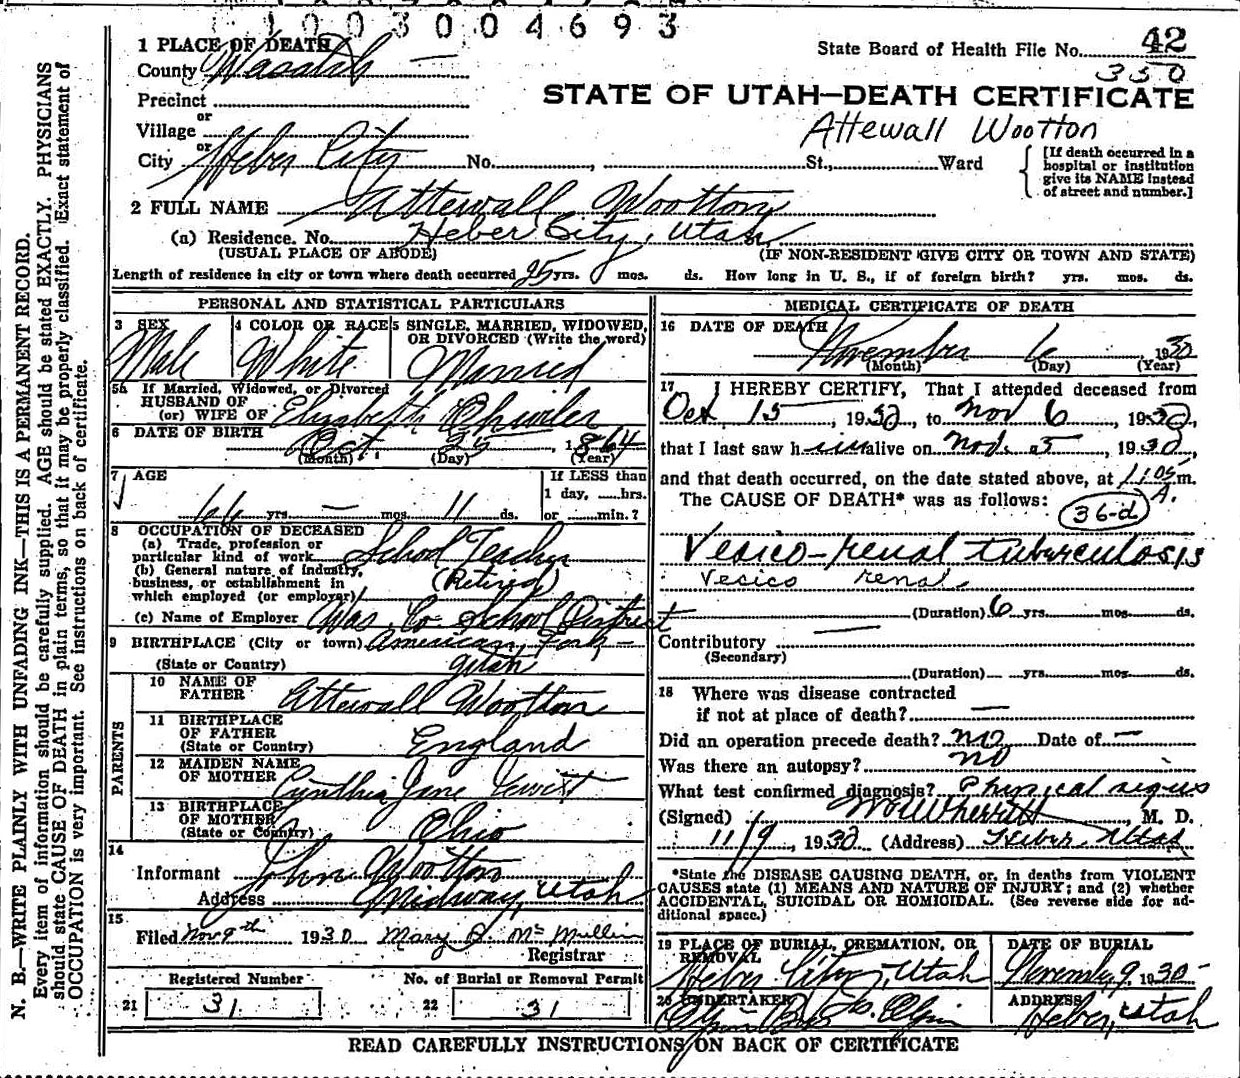 1003004693
1 PLACE OF DEATH
County Wasatch
State Board of Health File No. 42
350
Precinct
STATE OF UTAH—DEATH CERTIFICATE
or
Village
Attewall Wootton
or
City Heber City No. , St., Ward
[If death occurred in a hospital or institution give its NAME instead of street and number.]
2 FULL NAME Attewall Wootton
(a) Residence. No. Heber City, Utah
(USUAL PLACE OF ABODE) (IF NON-RESIDENT GIVE CITY OR TOWN AND STATE)
Length of residence in city or town where death occurred 25 yrs. mos. ds. How long in U. S., if of foreign birth? yrs. mos. ds.
PERSONAL AND STATISTICAL PARTICULARS
3 SEX
Male
4 COLOR OR RACE
White
5 SINGLE, MARRIED, WIDOWED,
OR DIVORCED (Write the word)
Married
5a If Married, Widowed, or Divorced
HUSBAND OF
(or) WIFE OF Elizabeth
6 DATE OF BIRTH Oct. 25 1864
(Month) (Day) (Year)
7 AGE
66 yrs. — mos. 11 ds.
If LESS than
1 day, hrs.
or min.?
8 OCCUPATION OF DECEASED
(a) Trade, profession or
particular kind of work School Teacher
(b) General nature of industry,
business, or establishment in
which employed (or employer) (Retired)
(c) Name of Employer Was. Co. School District
9 BIRTHPLACE (City or town) American Fork —
(State or Country) Utah
PARENTS
10 NAME OF
FATHER Attewall Wootton
11 BIRTHPLACE
OF FATHER
(State or Country) England
12 MAIDEN NAME
OF MOTHER Cynthia Jane Jewett
13 BIRTHPLACE
OF MOTHER
(State or Country) Ohio
14
Informant John Wootton
Address Midway, Utah
15
Filed Nov 9th 1930 Mary B. McMullin
Registrar
Registered Number
21 31
No. of Burial or Removal Permit
22 31
MEDICAL CERTIFICATE OF DEATH
16 DATE OF DEATH
November 6 1930
(Month) (Day) (Year)
17 I HEREBY CERTIFY, That I attended deceased from
Oct 15, 1930, to Nov 6, 1930,
that I last saw him alive on Nov. 5, 1930,
and that death occurred, on the date stated above, at 1:05 m.
A.
The CAUSE OF DEATH* was as follows:
36-d
Vesico-renal tuberculosis
Vesico renal
(Duration) 6 yrs. mos. ds.
Contributory —
(Secondary)
(Duration) yrs. mos. ds.
18 Where was disease contracted
if not at place of death? —
Did an operation precede death? no Date of —
Was there an autopsy? no
What test confirmed diagnosis? Physical signs
(Signed) , M. D.
11/9, 1930 (Address) Heber, Utah
*State the DISEASE CAUSING DEATH, or, in deaths from VIOLENT
CAUSES state (1) MEANS AND NATURE OF INJURY; and (2) whether
ACCIDENTAL, SUICIDAL OR HOMICIDAL. (See reverse side for ad-
ditional space.)
19 PLACE OF BURIAL, CREMATION, OR
REMOVAL
Heber City, Utah
DATE OF BURIAL
November 9, 1930
20 UNDERTAKER
ADDRESS
Heber, Utah
READ CAREFULLY INSTRUCTIONS ON BACK OF CERTIFICATE
N. B.—WRITE PLAINLY WITH UNFADING INK—THIS IS A PERMANENT RECORD.
Every item of information should be carefully supplied. AGE should be stated EXACTLY. PHYSICIANS
should state CAUSE OF DEATH in plain terms, so that it may be properly classified. Exact statement of
OCCUPATION is very important. See instructions on back of certificate.